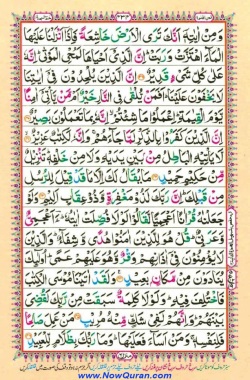 وَمِنْ اٰيٰتِهٖٓ اَنَّكَ تَرَى الْاَرْضَ خَاشِعَةً فَاِذَآ اَنْزَلْنَا عَلَيْهَا
الْمَآءَ اهْتَزَّتْ وَرَبَتْ اِنَّ الَّذِيْٓ اَحْيَاهَا لَمُحْيِ الْمَوْتٰى اِنَّهٗ
عَلٰى كُلِّ شَيْءٍ قَدِيْرٌ اِنَّ الَّذِيْنَ يُلْحِدُوْنَ فِيْٓ اٰيٰتِنَا
لَا يَخْفَوْنَ عَلَيْنَا اَفَمَنْ يُّلْقٰى فِي النَّارِ خَيْرٌ اَمْ مَّنْ يَّاْتِيْٓ اٰمِنًا
يَّوْمَ الْقِيٰمَةِ اِعْمَلُوْا مَا شِئْتُمْ اِنَّهٗ بِمَا تَعْمَلُوْنَ بَصِيْرٌ
اِنَّ الَّذِيْنَ كَفَرُوْا بِالذِّكْرِ لَمَّا جَآءَهُمْ وَاِنَّهٗ لَكِتٰبٌ عَزِيْزٌ
لَّا يَاْتِيْهِ الْبَاطِلُ مِنْ بَيْنِ يَدَيْهِ وَلَا مِنْ خَلْفِهٖ تَنْزِيْلٌ
مِّنْ حَكِيْمٍ حَمِيْدٍ مَا يُقَالُ لَكَ اِلَّا مَا قَدْ قِيْلَ لِلرُّسُلِ
مِنْ قَبْلِكَ اِنَّ رَبَّكَ لَذُوْ مَغْفِرَةٍ وَّذُوْ عِقَابٍ اَلِيْمٍ وَلَوْ
جَعَلْنٰهُ قُرْاٰنًا اَعْجَمِيًّا لَّقَالُوْا لَوْلَا فُصِّلَتْ اٰيٰتُهٗ ءَاَعْجَمِيٌّ
وَّعَرَبِيٌّ قُلْ هُوَ لِلَّذِيْنَ اٰمَنُوْا هُدًى وَّشِفَآءٌ وَالَّذِيْنَ
لَا يُؤْمِنُوْنَ فِيْٓ اٰذَانِهِمْ وَقْرٌ وَّهُوَ عَلَيْهِمْ عَمًى اُولٰٓئِكَ
يُنَادَوْنَ مِنْ مَّكَانٍۭ بَعِيْدٍ وَلَقَدْ اٰتَيْنَا مُوْسَى الْكِتٰبَ
فَاخْتُلِفَ فِيْهِ وَلَوْلَا كَلِمَةٌ سَبَقَتْ مِنْ رَّبِّكَ لَقُضِيَ
بَيْنَهُمْ وَاِنَّهُمْ لَفِيْ شَكٍّ مِّنْهُ مُرِيْبٍ مَنْ عَمِلَ صَالِحًا
فَلِنَفْسِهٖ وَمَنْ اَسَآءَ فَعَلَيْهَا وَمَا رَبُّكَ بِظَلَّامٍ لِّلْعَبِيْدِ
www.NowQuran.com